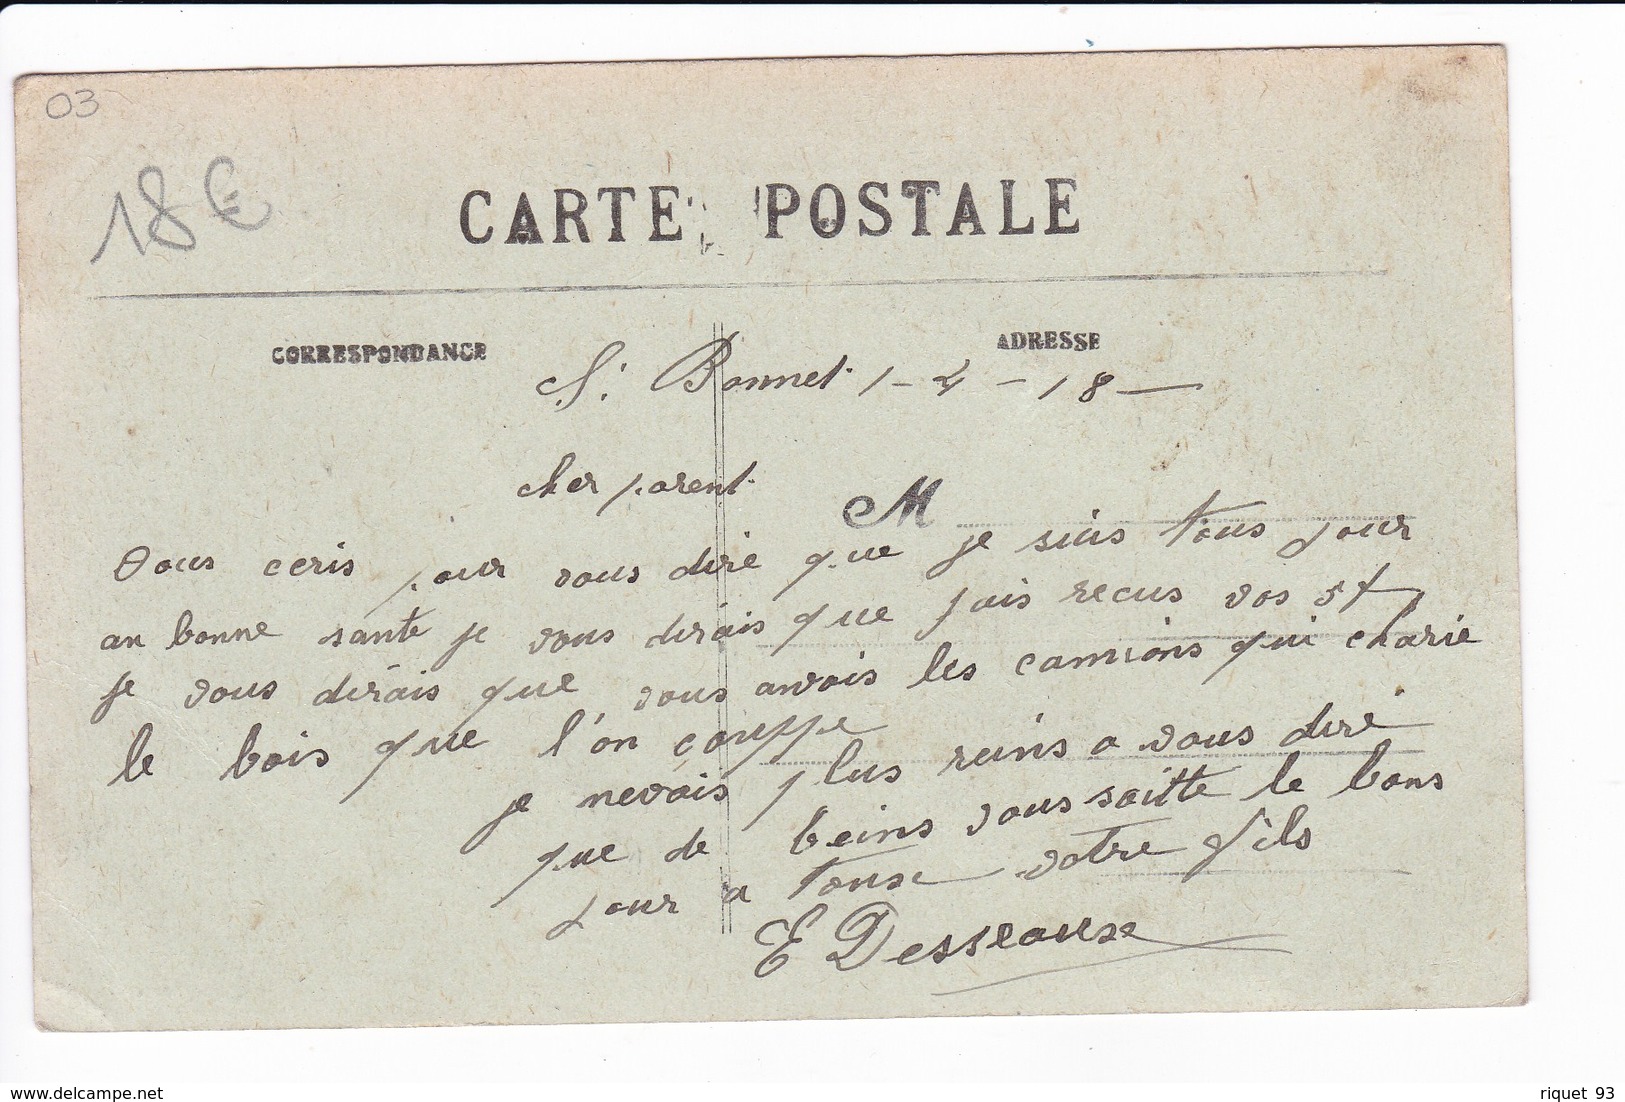 03
18 €
CARTE POSTALE
CORRESPONDANCE
ADRESSE
St. Bonnet 1-4-18
cher parent
M
Vous ecris pour vous dire que je suis tous jour
an bonne sante je vous dirais que jais recus vos 5f
je vous dirais que vous avvois les camions qui charie
le bois que l'on couppe
je nevois plus reins a vous dire
que de beins vous saitte le bons
jour a tousx votre fils
E Desseoux
delcampe.net
riquet 93